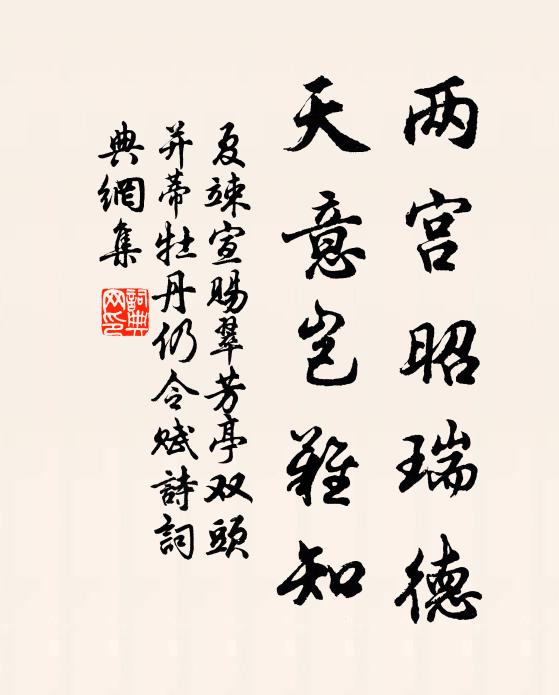 两宫昭瑞德
天意岂難知
夏竦宣賜翠芳亭双頭
并蒂牡丹仍令赋詩詞
典網集
詞典
网印